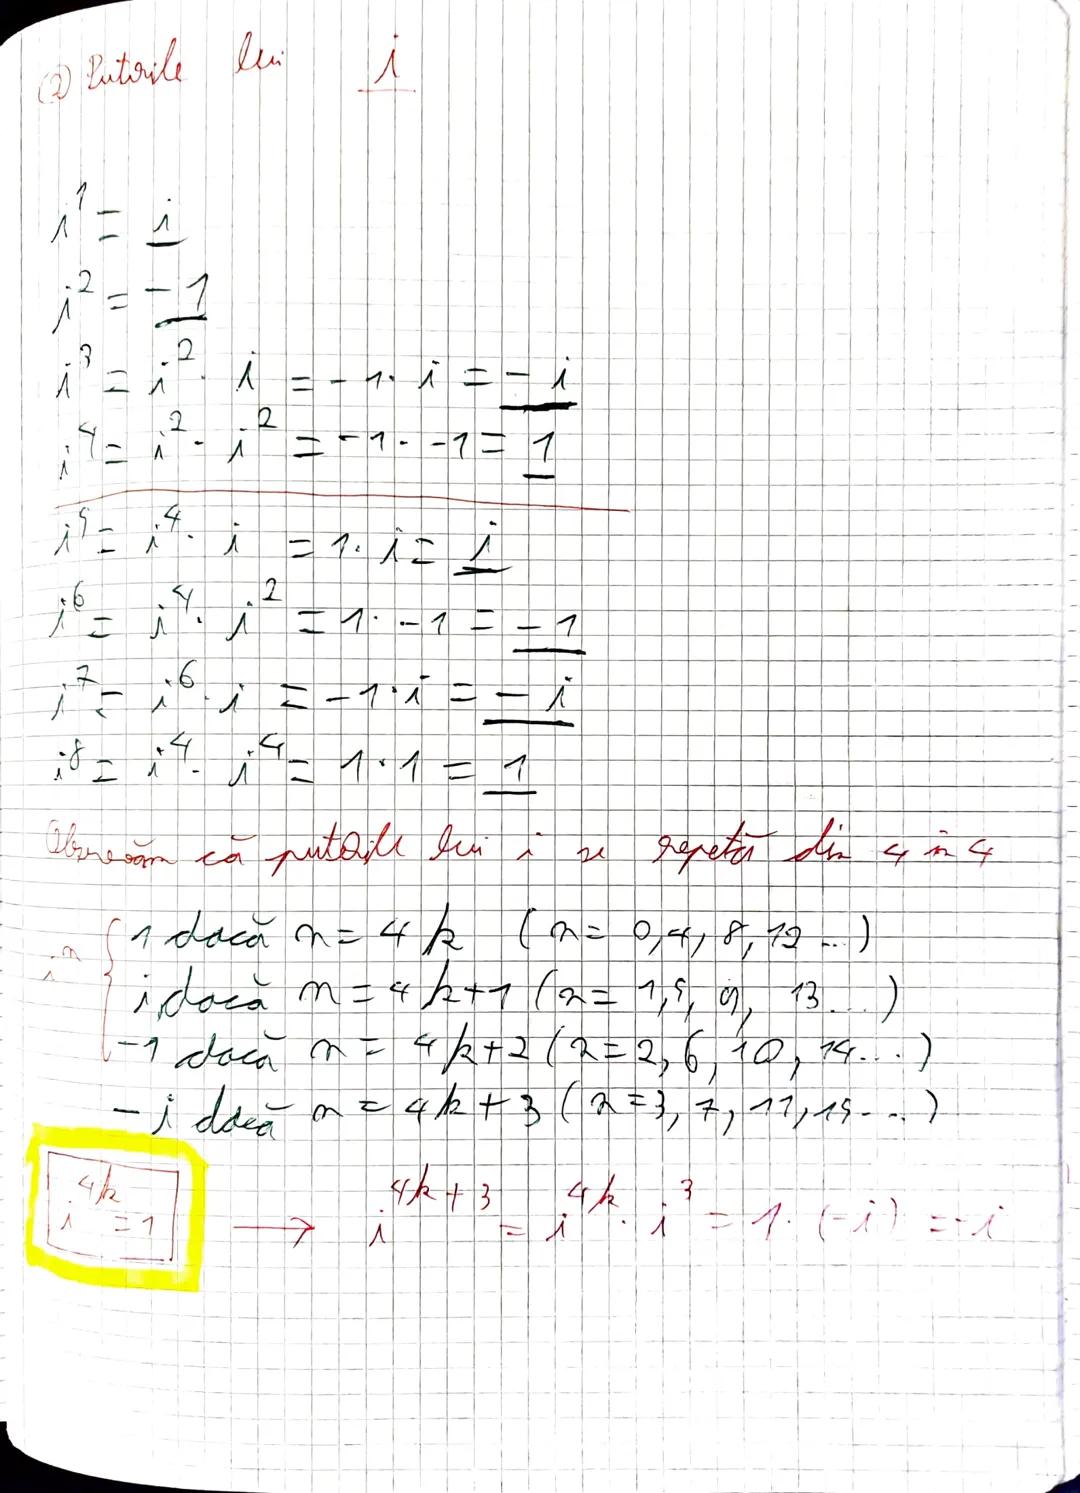 (2) Puterile lui i
i¹ = i
i² = -1
i³ = i² · i = -1 · i = -i
i⁴ = i² · i² = -1 · -1 = 1
i⁵ = i⁴ · i = 1 · i = i
i⁶ = i⁴ · i² = 1 · -1 = -1
i⁷ = i⁶ · i = -1 · i = -i
i⁸ = i⁴ · i⁴ = 1 · 1 = 1
Observăm că puterile lui i se repetă din 4 în 4
iⁿ { 1 dacă n = 4k (n = 0, 4, 8, 12 ...)
i dacă n = 4k+1 (n = 1, 5, 9, 13 ...)
-1 dacă n = 4k+2 (n = 2, 6, 10, 14 ...)
-i dacă n = 4k+3 (n = 3, 7, 11, 15 ...)
i⁴ᵏ = 1 → i⁴ᵏ⁺³ = i⁴ᵏ · i³ = 1 · (-i) = -i